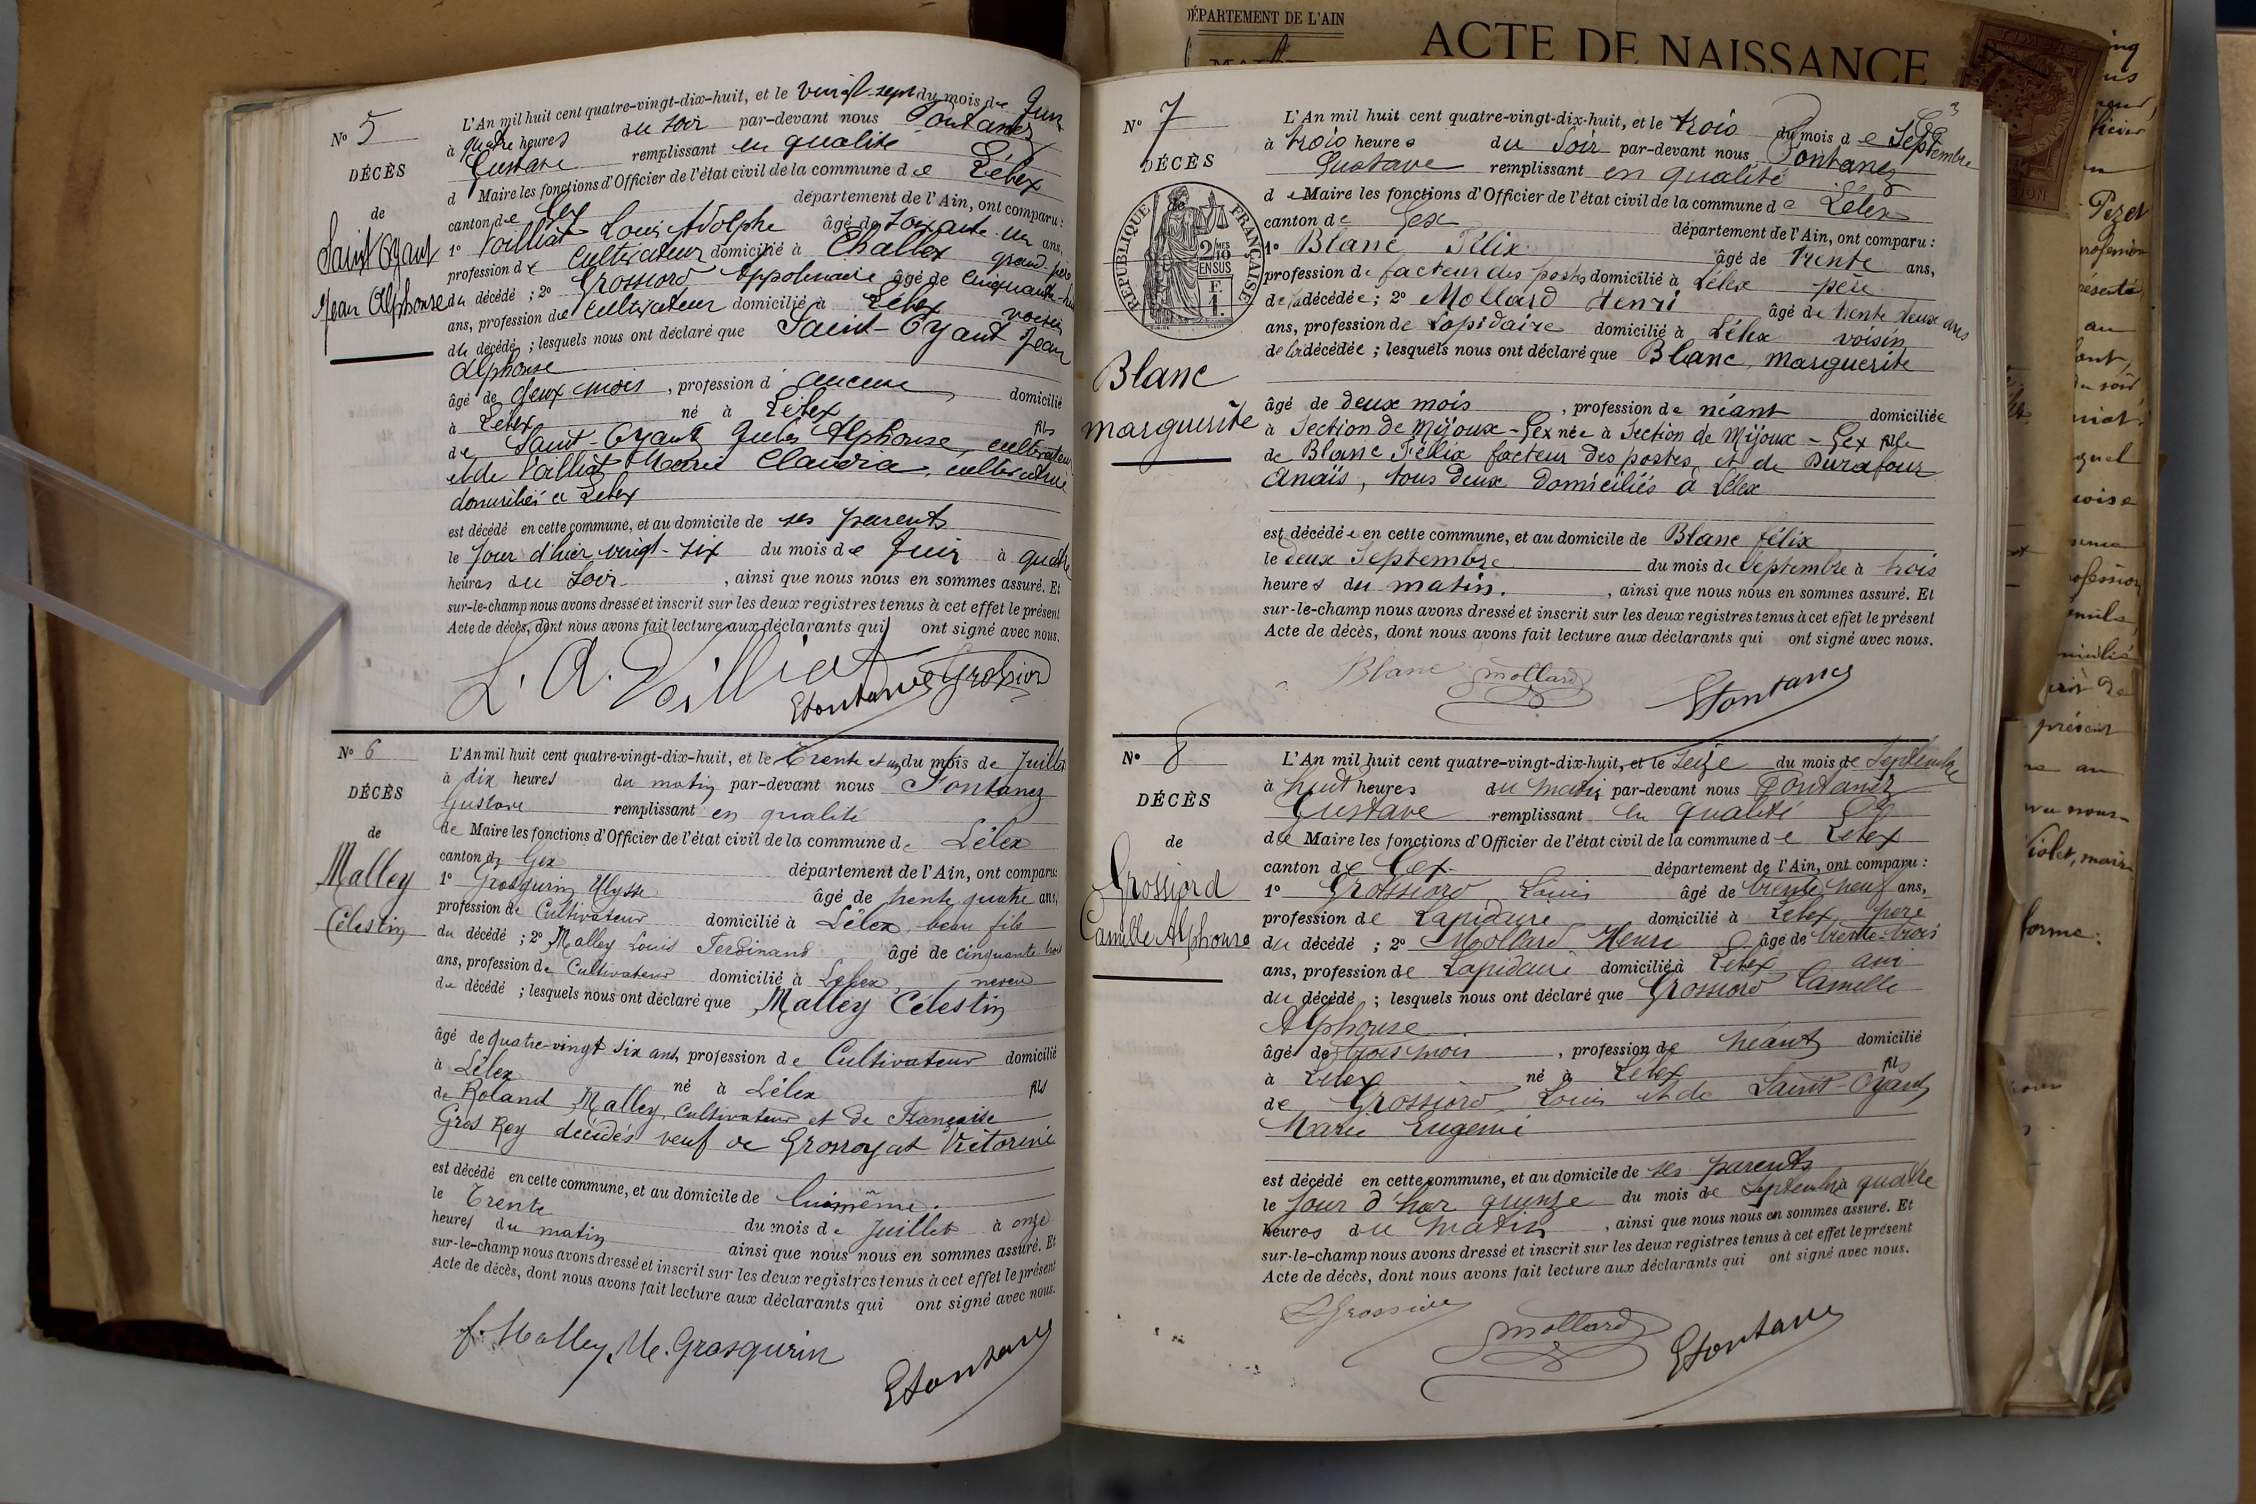 N° 5
DÉCÈS
de
Saint-Oyant
Jean Alphonse
L'An mil huit cent quatre-vingt-dix-huit, et le vingt-sept du mois de Juin
à quatre heures du soir par-devant nous Fontanez
Gustave remplissant en qualité
d Maire les fonctions d'Officier de l'état civil de la commune de Lélex
canton de Gex département de l'Ain, ont comparu :
1° Vailliat Louis Adolphe âgé de soixante-un ans,
profession de cultivateur domicilié à Challex grand-père
du décédé ; 2° Grossiord Appolinaire âgé de cinquante-huit
ans, profession de cultivateur domicilié à Lélex voisin
du décédé ; lesquels nous ont déclaré que Saint-Oyant Jean
Alphonse
âgé de deux mois, profession d aucune, domicilié
à Lélex né à Lélex fils
de Saint-Oyant Jules Alphonse, cultivateur
et de Vailliat Marie Claudia, cultivatrice
domiciliés à Lélex
est décédé en cette commune, et au domicile de ses parents
le jour d'hier vingt-six du mois de Juin à quatre
heures du soir, ainsi que nous nous en sommes assuré. Et
sur-le-champ nous avons dressé et inscrit sur les deux registres tenus à cet effet le présent
Acte de décès, dont nous avons fait lecture aux déclarants qui ont signé avec nous.
L. A. Vailliat Gfontanez Grossiord
N° 6
DÉCÈS
de
Malley
Célestin
L'An mil huit cent quatre-vingt-dix-huit, et le Trente et un du mois de Juillet
à dix heures du matin par-devant nous Fontanez
Gustave remplissant en qualité
de Maire les fonctions d'Officier de l'état civil de la commune de Lélex
canton de Gex département de l'Ain, ont comparu :
1° Grosgurin Ulysse âgé de trente quatre ans,
profession de Cultivateur domicilié à Lélex, beau fils
du décédé ; 2° Malley Louis Ferdinand âgé de cinquante trois
ans, profession de Cultivateur domicilié à Lélex, neveu
du décédé ; lesquels nous ont déclaré que Malley Célestin
âgé de quatre-vingt six ans, profession de Cultivateur domicilié
à Lélex né à Lélex fils
de Roland Malley, Cultivateur et de Françoise
Gros Rey décédés veuf de Grossoyat Victorine
est décédé en cette commune, et au domicile de lui même.
le Trente du mois de Juillet à onze
heures du matin ainsi que nous nous en sommes assuré. Et
sur-le-champ nous avons dressé et inscrit sur les deux registres tenus à cet effet le présent
Acte de décès, dont nous avons fait lecture aux déclarants qui ont signé avec nous.
f. Malley U. Grosgurin
Gfontanez
DÉPARTEMENT DE L'AIN
ACTE DE NAISSANCE
3
N° 7
DÉCÈS
de
RÉPUBLIQUE FRANÇAISE
2/10 MES
EN SUS
1 F.
Blanc
Marguerite
L'An mil huit cent quatre-vingt-dix-huit, et le trois du mois de Septembre
à trois heures du soir par-devant nous Fontanez
Gustave remplissant en qualité
de Maire les fonctions d'Officier de l'état civil de la commune de Lélex
canton de Gex département de l'Ain, ont comparu :
1° Blanc Félix âgé de trente ans,
profession de facteur des postes domicilié à Lélex père
de la décédée ; 2° Mollard Henri âgé de trente deux ans
ans, profession de Lapidaire domicilié à Lélex voisin
de la décédée ; lesquels nous ont déclaré que Blanc Marguerite
âgé de deux mois, profession de néant domiciliée
à Section de Mijoux - Gex née à Section de Mijoux - Gex fille
de Blanc Félix facteur des postes, et de Durafour
Anaïs, tous deux domiciliés à Lélex
est décédée en cette commune, et au domicile de Blanc félix
le deux Septembre du mois de Septembre à trois
heures du matin., ainsi que nous nous en sommes assuré. Et
sur-le-champ nous avons dressé et inscrit sur les deux registres tenus à cet effet le présent
Acte de décès, dont nous avons fait lecture aux déclarants qui ont signé avec nous.
Blanc Mollard Gfontanez
N° 8
DÉCÈS
de
Grossiord
Camille Alphonse
L'An mil huit cent quatre-vingt-dix-huit, et le seize du mois de Septembre
à huit heures du matin par-devant nous Fontanez
Gustave remplissant en qualité
de Maire les fonctions d'Officier de l'état civil de la commune de Lélex
canton de Gex département de l'Ain, ont comparu :
1° Grossiord Louis âgé de trente neuf ans,
profession de Lapidaire domicilié à Lélex, père
du décédé ; 2° Mollard Henri âgé de trente-trois
ans, profession de Lapidaire domicilié à Lélex, ami
du décédé ; lesquels nous ont déclaré que Grossiord Camille
Alphonse
âgé de trois mois, profession de néant domicilié
à Lélex né à Lélex fils
de Grossiord Louis et de Saint-Oyant
Marie Eugénie
est décédé en cette commune, et au domicile de ses parents
le jour d'hier quinze du mois de Septembre à quatre
heures du matin, ainsi que nous nous en sommes assuré. Et
sur-le-champ nous avons dressé et inscrit sur les deux registres tenus à cet effet le présent
Acte de décès, dont nous avons fait lecture aux déclarants qui ont signé avec nous.
L Grossiord Mollard Gfontanez